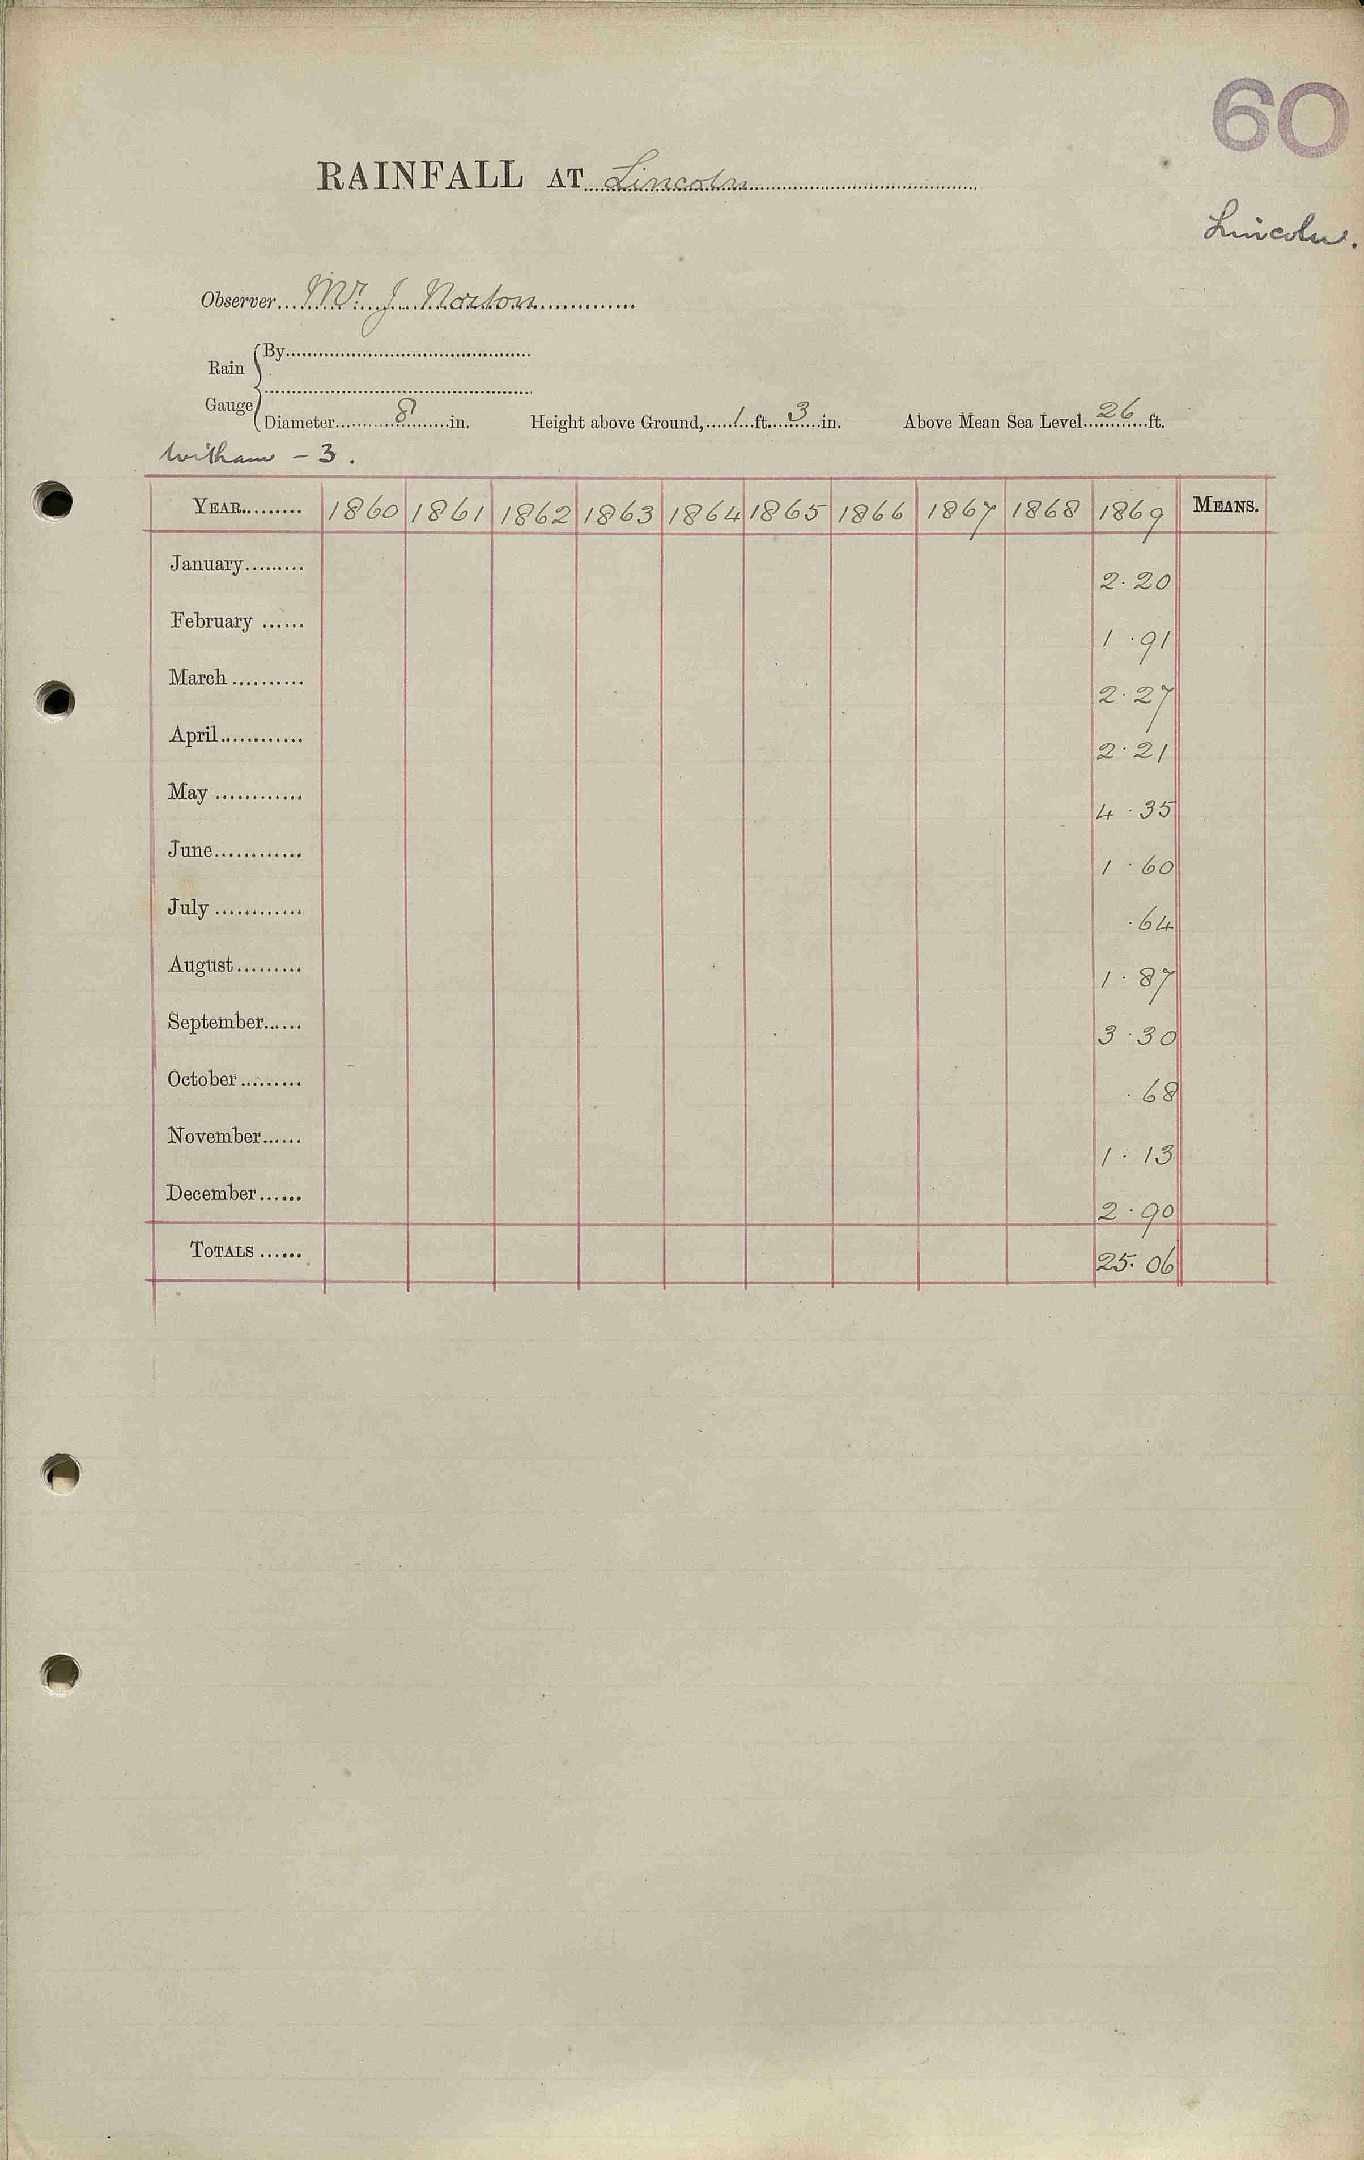 60
RAINFALL AT Lincoln
Lincoln.
Observer Mr. J Norton
Rain Gauge
By
Diameter 8 in. Height above Ground, 1 ft. 3 in. Above Mean Sea Level 26 ft.
Witham - 3.
YEAR 1860 1861 1862 1863 1864 1865 1866 1867 1868 1869 MEANS.
January 2.20
February 1.91
March 2.27
April 2.21
May 4.35
June 1.60
July .64
August 1.87
September 3.30
October .68
November 1.13
December 2.90
TOTALS 25.06